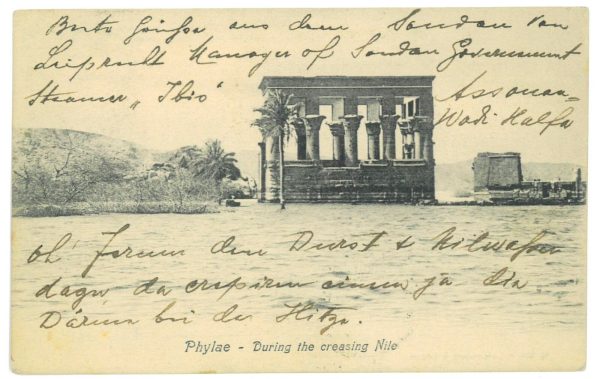 Beste Grüsse aus dem Soudan von
Leiprecht Manager of Soudan Government
Steamer „Ibis" Assouan-
Wadi Halfa
oh' Jerum den Durst & Nilwasser
dazu da crepiren einem ja die
Därme bei der Hitze.
Phylae - During the creasing Nile